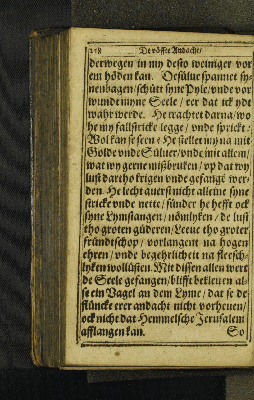 218 De vöffte Andacht/
derwegen in my desto weiniger vor
em höden kan. De sülue spannet sy-
nen bagen/schütt syne Pyle/vnde vor
wundet myne Seele/eer dat ick ydt
wahr werde. He trachtet darna/wo
he my fallstricke legge/vnde sprickt:
Wol kan se seen? He stellet my na mit
Golde vnde Süluer/vnde mit allem/
wat wy gerne mißbruken/vp dat wy
lust dartho krigen vnde gefangē wer-
den. He lecht auerst nicht alleine syne
stricke vnde nette/sünder he hefft ock
syne Lymstangen/nömlyken/de lust
tho groten güderen/Leeue tho groter
fründtschop/vorlangent na hogen
ehren/vnde begehrlicheit na fleesch-
lyken wollüsten. Mit dissen allen wert
de Seele gefangen/blifft bekleuen al-
se ein Vagel an dem Lyme/dat se de
flüncke erer andacht nicht vorheuen/
ock nicht dat Hemmelsche Jerusalem
afflangen kan. So